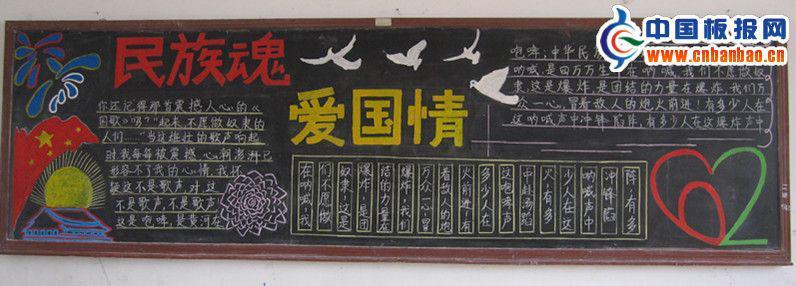 民族魂
爱国情
你还记得那首震撼人心的《
国歌》吗?"起来不愿做奴隶的
人们……"当这雄壮的歌声响起
时我每每被震撼,心利澎湃已
形容不了我的心情,我怀
疑这不是歌声,对这
不是歌声,不是歌声,
这是咆哮,是黄河在
咆哮,中华民族
呐喊,是四万万生 在呐喊,我们不愿做奴
隶,这是爆炸,是团结的力量在爆炸,我们万
众一心,冒着敌人的炮火前进!有多少人在
这呐喊声中冲锋陷阵,有多少人在这爆炸声中
在呐喊,我
们不愿做
奴隶,这是
爆炸,是团
结的力量在
爆炸,我们
万众一心冒
着敌人的炮
火前进!有
多少人在
这咆哮声
中赴汤蹈
火,有多
少人在这
呐喊声中
冲锋陷
阵,有多
62
中国板报网
www.cnbanbao.cn